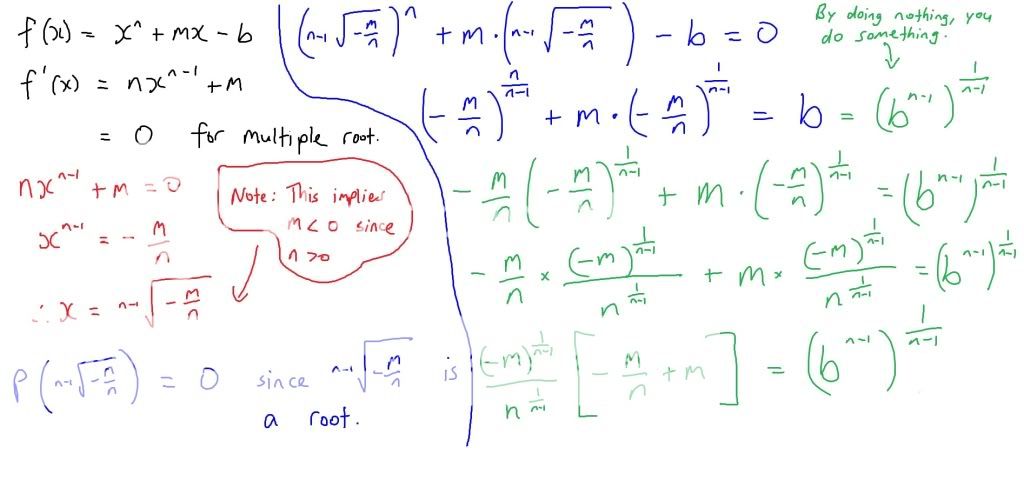 f(x) = xⁿ + mx - b
f'(x) = nxⁿ⁻¹ + m
= 0 for multiple root.
nxⁿ⁻¹ + m = 0
xⁿ⁻¹ = - m/n
∴ x = ⁿ⁻¹√(-m/n)
Note: This implies
m < 0 since
n > 0
P(ⁿ⁻¹√(-m/n)) = 0 since ⁿ⁻¹√(-m/n) is
a root.
(ⁿ⁻¹√(-m/n))ⁿ + m · (ⁿ⁻¹√(-m/n)) - b = 0
By doing nothing, you
do something.
(-m/n)^(n/(n-1)) + m · (-m/n)^(1/(n-1)) = b = (b^(n-1))^(1/(n-1))
- m/n (-m/n)^(1/(n-1)) + m · (-m/n)^(1/(n-1)) = (b^(n-1))^(1/(n-1))
- m/n × (-m)^(1/(n-1)) / n^(1/(n-1)) + m × (-m)^(1/(n-1)) / n^(1/(n-1)) = (b^(n-1))^(1/(n-1))
(-m)^(1/(n-1)) / n^(1/(n-1)) [- m/n + m] = (b^(n-1))^(1/(n-1))